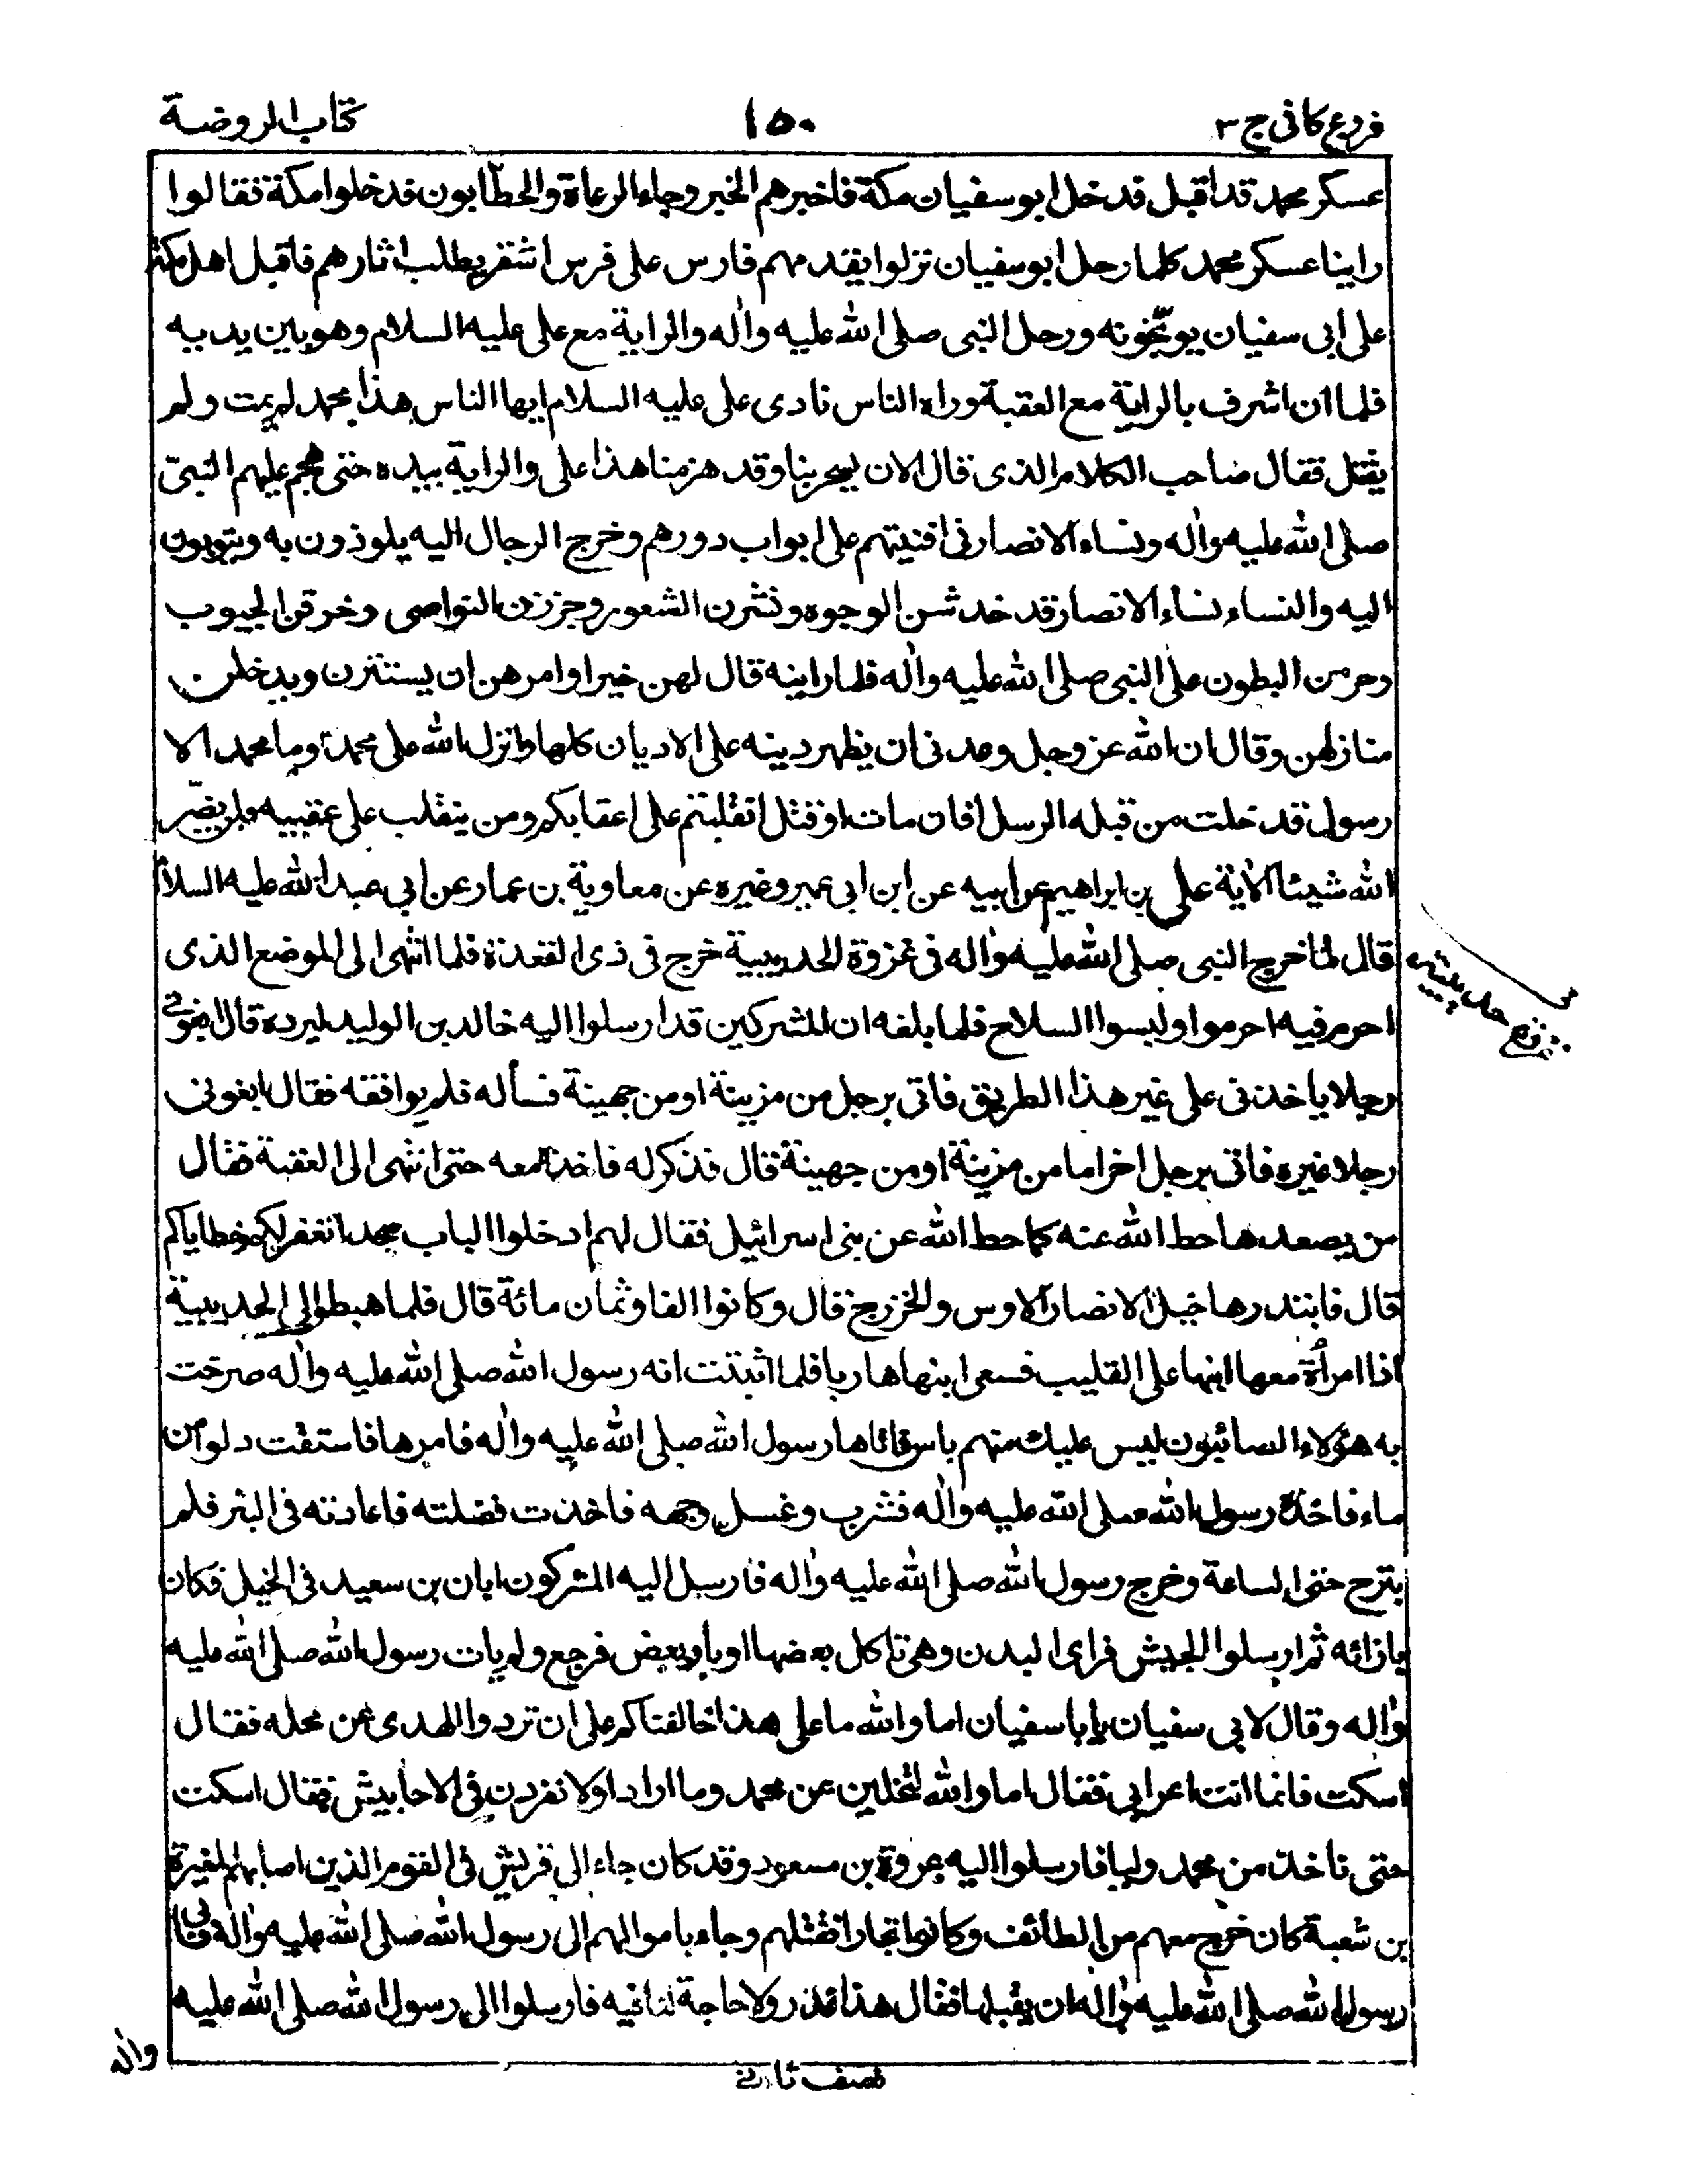 فروع كافى ج ٣
١٥٠
كتاب الروضة
عسكر محمد قد اقبل فدخل ابوسفيان مكة فاخبرهم الخبر وجاء الرعاة والحطّابون فدخلوا مكة فقالوا
راينا عسكر محمد كلما رحل ابوسفيان نزلوا يقدمهم فارس على فرس اشقر يطلب اثارهم فاقبل اهل مكة
على ابى سفيان يوبّخونه ورحل النبى صلى الله عليه واله والراية مع على عليه السلام وهو بين يديه
فلما ان اشرف بالراية مع العقبة وراه الناس نادى على عليه السلام ايها الناس هذا محمد لم يمت ولم
يقتل فقال صاحب الكلام الذى قال الان يسخر بنا وقد هزمنا هذا على والراية بيده حتى هجم عليهم النبىّ
صلى الله عليه واله ونساء الانصار فى افنيتهم على ابواب دورهم وخرج الرجال اليه يلوذون به ويتوبون
اليه والنساء نساء الانصار قد خدشن الوجوه ونشرن الشعور وجززن النواصى وخرقن الجيوب
وحرمن البطون على النبى صلى الله عليه واله فلما راينه قال لهن خيرا وامرهن ان يستترن ويدخلن
منازلهن وقال ان الله عز وجل وعدنى ان يظهر دينه على الاديان كلها وانزل الله على محمد وما محمد الا
رسول قد خلت من قبله الرسل افان مات او قتل انقلبتم على اعقابكم ومن ينقلب على عقبيه فلن يضّر
الله شيئا الاية على بن ابراهيم عن ابيه عن ابن ابى عمير وغيره عن معاوية بن عمار عن ابي عبد الله عليه السلام
قال لما خرج النبى صلى الله عليه واله فى غزوة الحديبية خرج فى ذى القعدة فلما انتهى الى الموضع الذى
احرم فيه احرموا ولبسوا السلاح فلما بلغه ان المشركين قد ارسلوا اليه خالد بن الوليد ليرده قال ابغونى
رجلا ياخذنى على غير هذا الطريق فاتى برجل من مزينة او من جهينة فسأله فلم يوافقه فقال ابغونى
رجلا غيره فاتى برجل اخر اما من مزينة او من جهينة قال فذكر له فاخذه معه حتى انتهى الى العقبة فقال
من يصعدها حط الله عنه كما حط الله عن بنى اسرائيل فقال لهم ادخلوا الباب سجدا نغفر لكم خطاياكم
قال فابتدرها خيل الانصار الاوس والخزرج قال وكانوا الفا وثمان مائة قال فلما هبطوا الى الحديبية
اذا امرأة معها ابنها على القليب فسعى ابنها هاربا فلما اثبتت انه رسول الله صلى الله عليه واله صرخت
به هؤلاء الصائبون ليس عليك منهم باس فاتاها رسول الله صلى الله عليه واله فامرها فاستقت دلوا من
ماء فاخذه رسول الله صلى الله عليه واله فشرب وغسل وجهه فاخذت فضلته فاعادته فى البئر فلم
يتزح حتى الساعة وخرج رسول الله صلى الله عليه واله فارسل اليه المشركون ابان بن سعيد فى الخيل فكان
بازائه ثم ارسلوا الجيش فراى البدن وهى تاكل بعضها اوبار بعض فرجع ولم يات رسول الله صلى الله عليه
واله وقال لابى سفيان يابا سفيان اما والله ما على هذا خالفناكم على ان تردوا الهدى عن محله فقال
اسكت فانما انت اعرابى فقال اما والله لتخلين عن محمد وما اراد او لانفردن فى الاحابيش فقال اسكت
حتى ناخذ من محمد ولبا فارسلوا اليه عروة بن مسعود وقد كان جاء الى قريش فى القوم الذين اصابهم المغيرة
بن شعبة كان خرج معهم من الطائف وكانوا تجارا فقتلهم وجاء باموالهم الى رسول الله صلى الله عليه واله فابى
رسول الله صلى الله عليه واله ان يقبلها فقال هذا غدر ولا حاجة لنا فيه فارسلوا الى رسول الله صلى الله عليه
واله
نصف ثانى